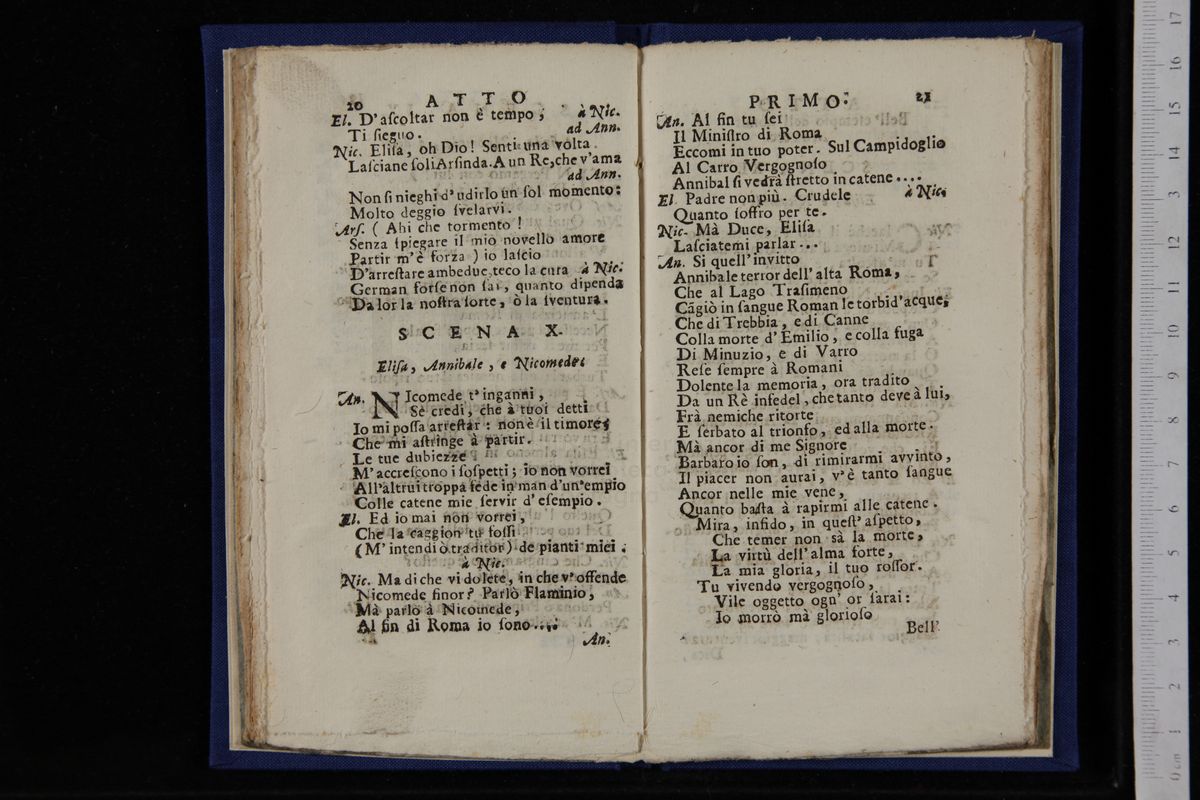 20 ATTO
El. D'aſcoltar non è tempo; à Nic.
Ti ſieguo. ad Ann.
Nic. Eliſa, oh Dio! Senti una volta
Laſciane ſoli Arſinda. A un Re, che v'ama
ad Ann.
Non ſi nieghi d'udirlo un ſol momento:
Molto deggio ſvelarvi.
Arſ. ( Ahi che tormento !
Senza ſpiegare il mio novello amore
Partir m'è forza ) io laſcio
D'arreſtare ambedue teco la cura à Nic.
German forſe non ſai, quanto dipenda
Da lor la noſtra ſorte, ò la ſventura.
SCENA X.
Eliſa, Annibale, e Nicomede.
An. NIcomede t'inganni,
Sè credi, che à tuoi detti
Io mi poſſa arreſtar: non è il timore,
Che mi aſtringe à partir.
Le tue dubiezze
M'accreſcono i ſoſpetti; io non vorrei
All'altrui troppa fede in man d'un'empio
Colle catene mie ſervir d'eſempio.
El. Ed io mai non vorrei,
Che la caggion tu foſſi
(M'intendi ò traditor) de pianti miei.
à Nic.
Nic. Ma di che vi dolete, in che v'offende
Nicomede finor? Parlò Flaminio,
Mà parlò à Nicomede,
Al fin di Roma io ſono....
An.
PRIMO. 21
An. Al fin tu ſei
Il Miniſtro di Roma
Eccomi in tuo poter. Sul Campidoglio
Al Carro Vergognoſo
Annibal ſi vedrà ſtretto in catene....
El. Padre non più. Crudele à Nic.
Quanto ſoffro per te.
Nic. Mà Duce, Eliſa
Laſciatemi parlar...
An. Si quell'invitto
Annibale terror dell'alta Roma,
Che al Lago Traſimeno
Cāgiò in ſangue Roman le torbid'acque,
Che di Trebbia, e di Canne
Colla morte d'Emilio, e colla fuga
Di Minuzio, e di Varro
Reſe ſempre à Romani
Dolente la memoria, ora tradito
Da un Rè infedel, che tanto deve à lui,
Frà nemiche ritorte
E ſerbato al trionfo, ed alla morte.
Mà ancor di me Signore
Barbaro io ſon, di rimirarmi avvinto,
Il piacer non aurai, v'è tanto ſangue
Ancor nelle mie vene,
Quanto baſta à rapirmi alle catene.
Mira, infido, in queſt'aſpetto,
Che temer non sà la morte,
La virtù dell'alma forte,
La mia gloria, il tuo roſſor.
Tu vivendo vergognoſo,
Vile oggetto ogn'or ſarai:
Io morrò mà glorioſo
Bell'